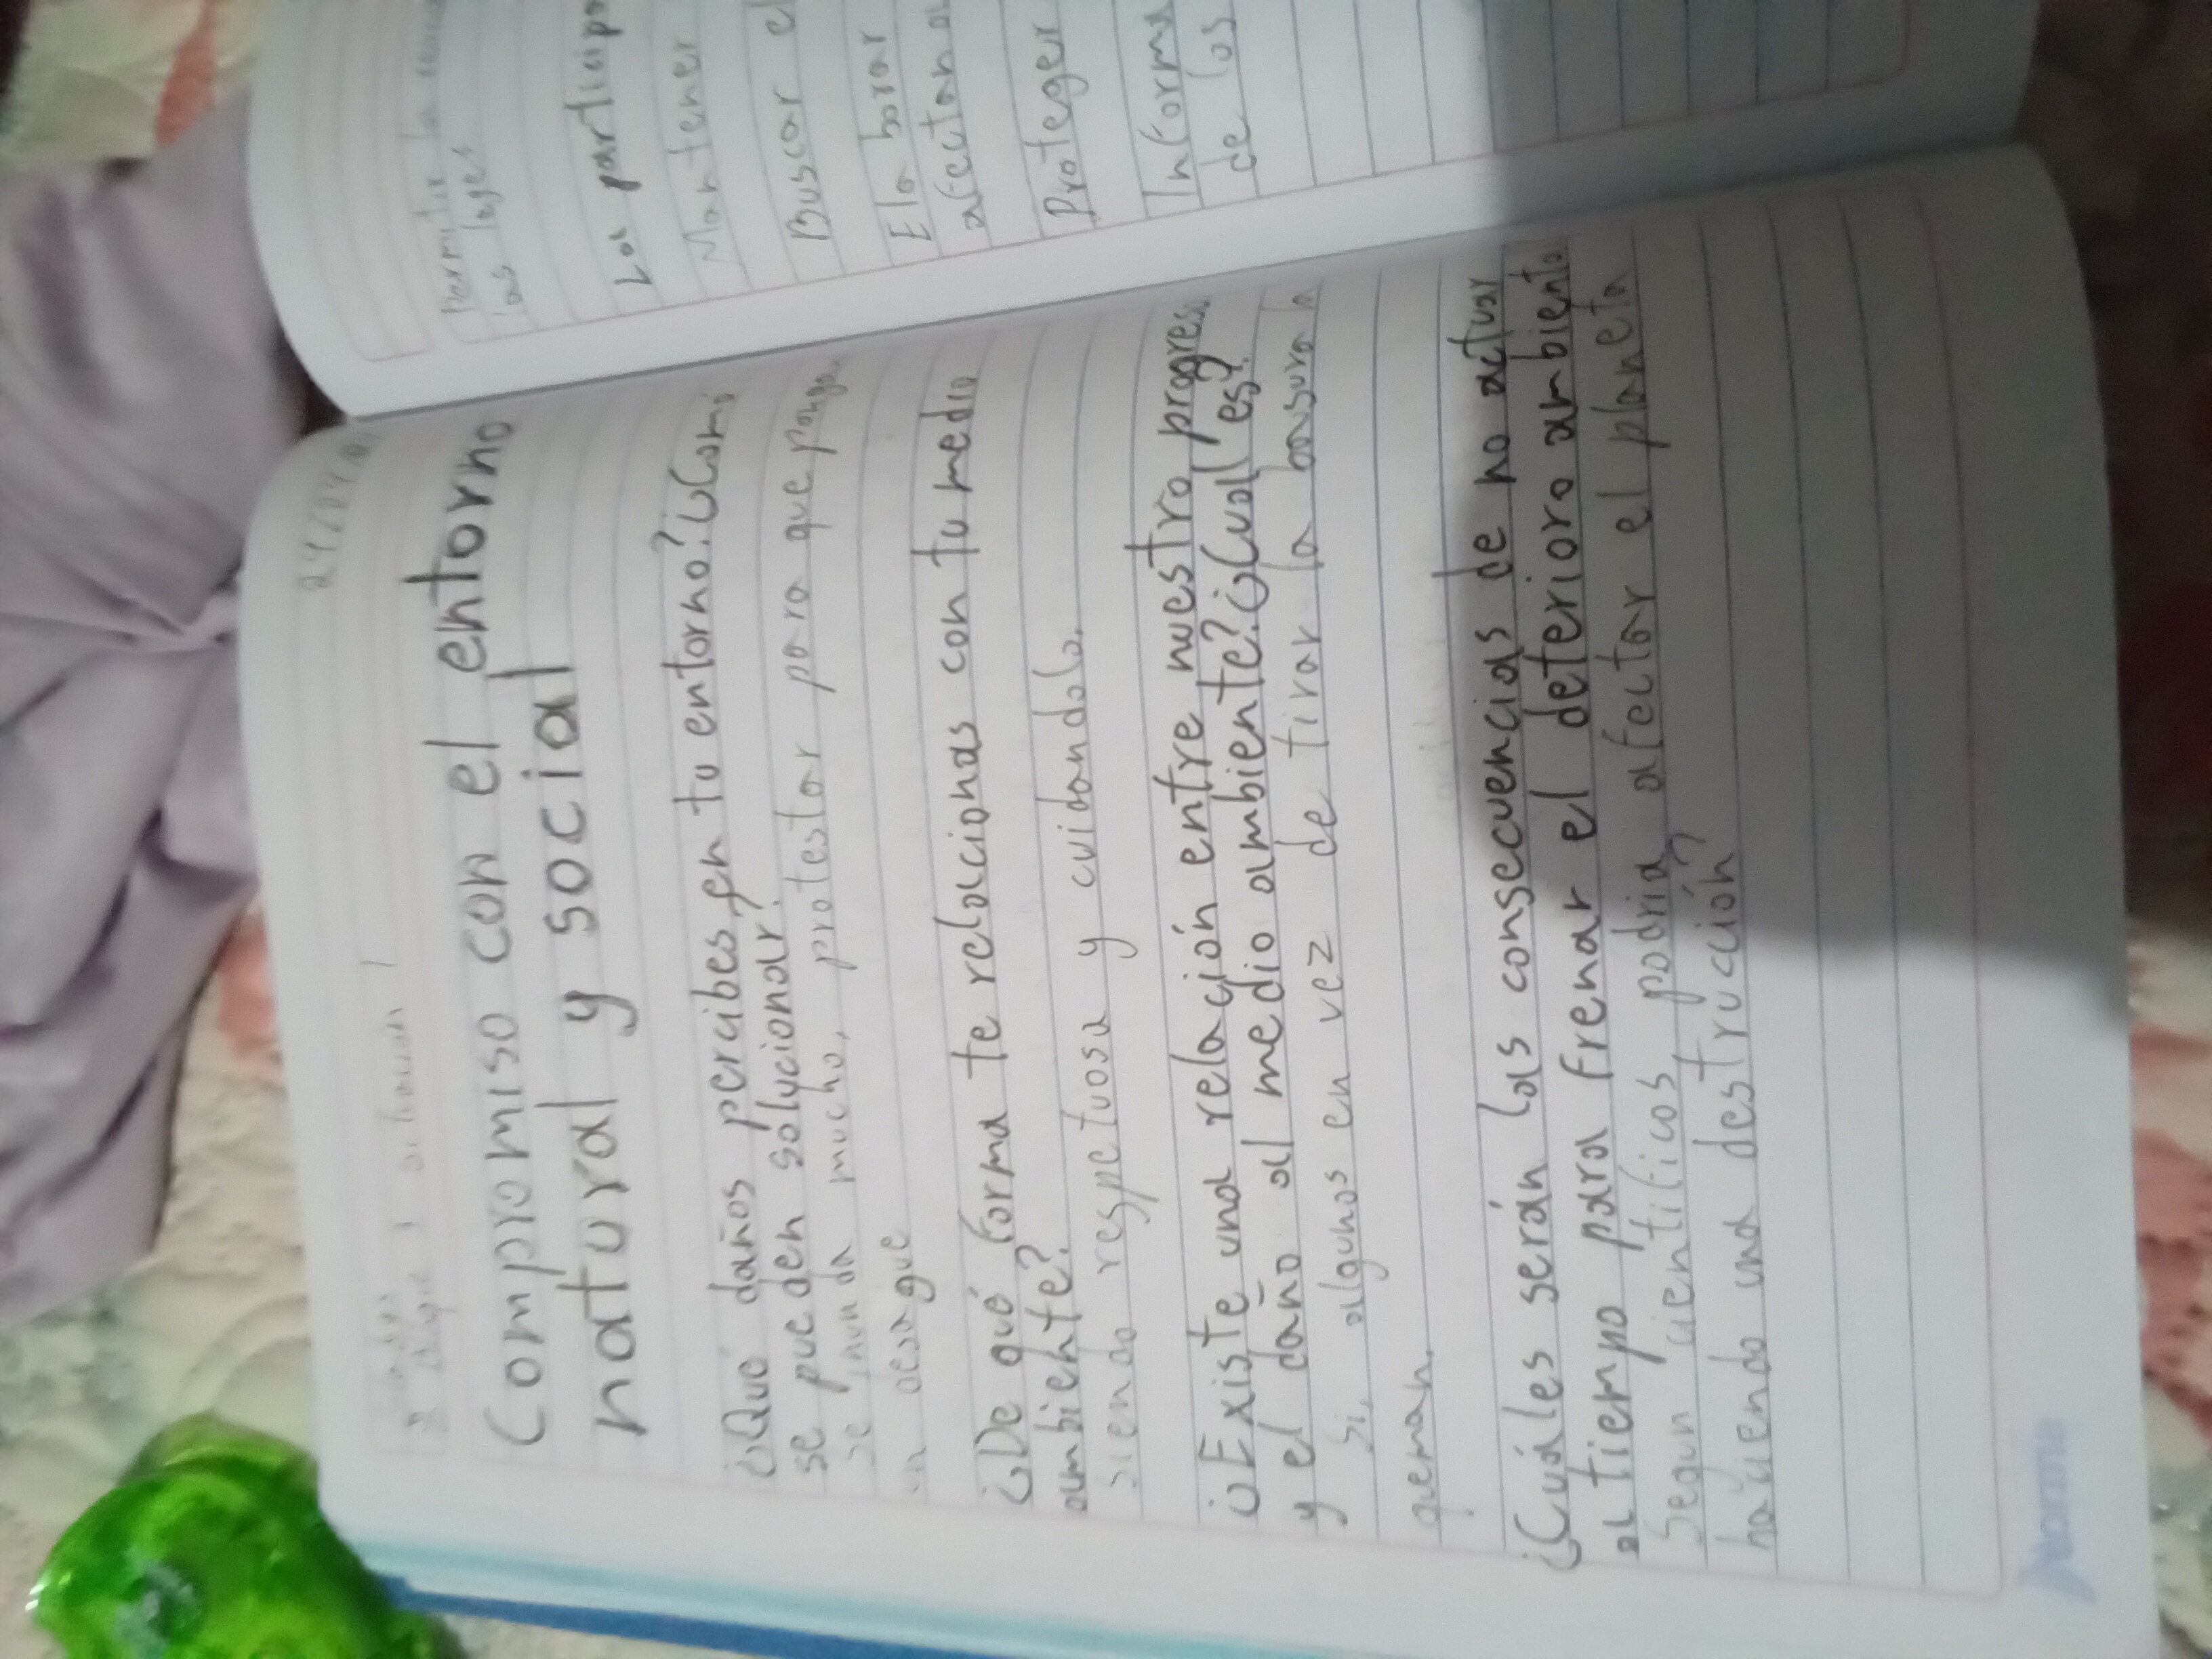 Compromiso con el entorno
natural y social
¿Qué daños percibes en tu entorno? ¿Comó
se pueden solucionar?
se inunda mucho, protestor para que ponga
un desague
¿De qué forma te relacionas con tu medio
ambiente?
siendo respetuosa y cuidandolo.
¿Existe una relación entre nuestro progres
y el daño al medio ambiente? ¿Cual es?
Si, algunos en vez de tirar la basura la
queman.
¿Cuáles serán las consecuencias de no actuar
a tiempo para frenar el deterioro ambienta
Segun cientificos podria afectar el planeta
haciendo una destrucción?
Norma
Permitir la
las leyes
La participa
Mantener
Buscar el
Elaborar
afectan a
Proteger
Informa
de los